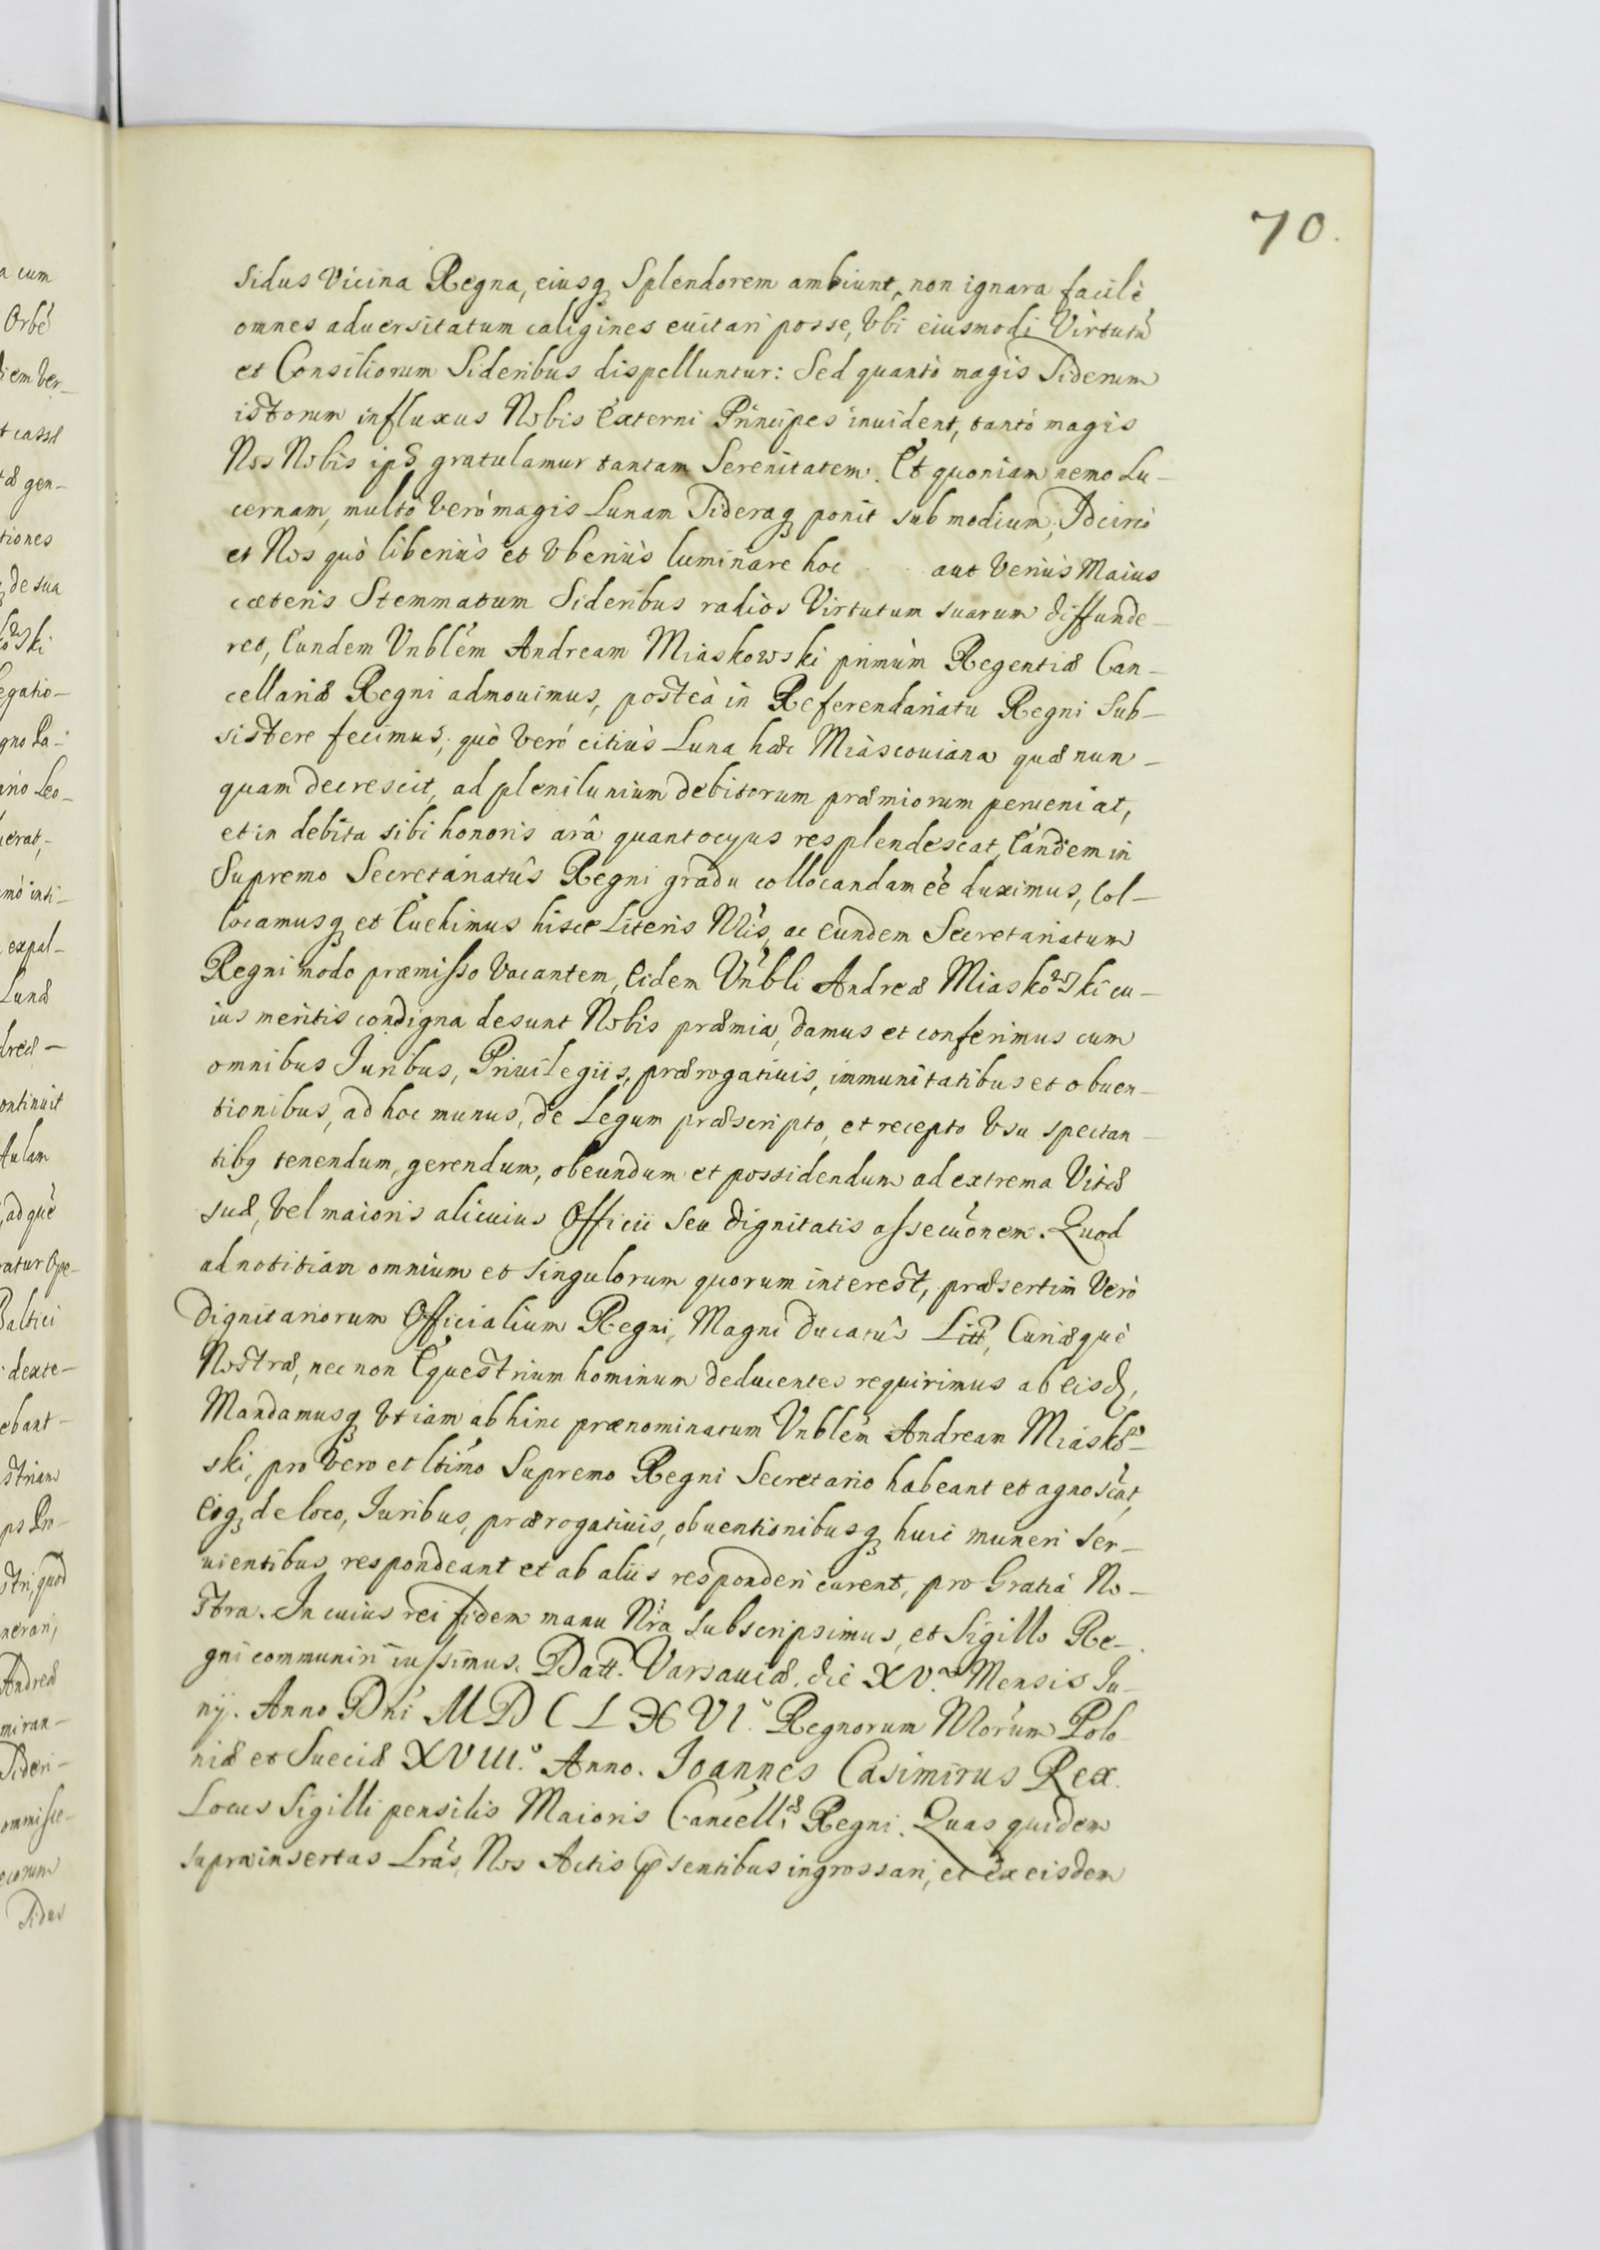 70.
sidus Vicina Regna, eiusq₃ Splendorem ambiunt, non ignara facilè
omnes aduersitatum caligines euitari posse, Vbi eiusmodi Virtutũ
et Consiliorum Sideribus dispelluntur: Sed quantò magis Siderum
istorum influxus Nobis Externi Principes inuident, tantó magis
Nos Nobis ips gratulamur tantam Serenitatem. Et quoniam nemo Lu-
cernam, multò Veró magis Lunam Sideraq₃ ponit sub modium, Idcircò
et Nos quò liberiùs et Vberiùs luminare hoc aut Veriùs Maius
cæteris Stemmatum Sideribus radios Virtutum suarum diffunde-
ret, Eundem Vnblem Andream Miaskowski primùm Regentiæ Can-
cellariæ Regni admouimus, posteà in Referendariatu Regni Sub-
sistere fecimus, quò Veró citiùs Luna hæc Miascouiana quæ nun-
quam decrescit, ad plenilunium debitorum præmiorum perueniat,
et in debita sibi honoris arâ quantocyus resplendescat, Eandem in
Supremo Secretariatûs Regni gradu collocandam ẽẽ duximus, Col-
locamusq₃ et Euehimus hisce Literis Nris, ac Eundem Secretariatum
Regni modo præmisso Vacantem, Eidem Vnbli Andreæ Miaskowski cu-
ius meritis condigna desunt Nobis præmia, damus et conferimus cum
omnibus Juribus, Priuilegiis, prærogatiuis, immunitatibus et obuen-
tionibus, ad hoc munus, de Legum præscripto, et recepto Vsu spectan-
tibq tenendum, gerendum, obeundum et possidendum ad extrema Vitæ
suæ, Vel maioris alicuius Officii Seu dignitatis assecuonem. Quod
ad notitiam omnium et Singulorum quorum interest, præsertim Verò
Dignitariorum Officialium Regni, Magni Ducatûs Litt, Curiæquè
Nostræ, nec non Equestrium hominum deducentes requirimus ab eisd,
Mandamusq₃ Vt iam abhinc prænominatum Vnblem Andream Miasko-
ski, pro Vero et Ltimo Supremo Regni Secretario habeant et agnoscãt,
Eiq₃ de loco, Juribus, prærogatiuis, obuentionibusq₃ huic muneri Ser-
uientibus, respondeant et ab aliis responderi curent, pro Gratiâ No-
stra. In cuius rei fidem manu Nra subscripsimus, et Sigillo Re-
gni communiri iussimus. Datt. Varsauiæ. die XV. Mensis Ju-
nij. Anno Dni MDCLXVI.º Regnorum Norum Polo
niæ et Sueciæ XVIII.º Anno. Joannes Casimirus Rex.
Locus Sigilli pensilis Maioris Cancellæ Regni. Quas quidem
suprainsertas Lras, Nos Actis psentibus ingrossari, et ex eisdem
a cum
Orbẽ
diem Ver-
t cassæ
tæ gen-
tiones
de sua
legatio-
gno Pa-
ario Leo-
uerat,
mò inti-
expal-
Lunæ
dreæ-
ontinuit
Aulam
, ad quẽ
ratur Ope-
Baltici
dexte-
ebant-
striam
ps Pri-
stri, quod
nerari,
Andreæ
miran-
Sideri-
ommisse-
ecorum
Sidus